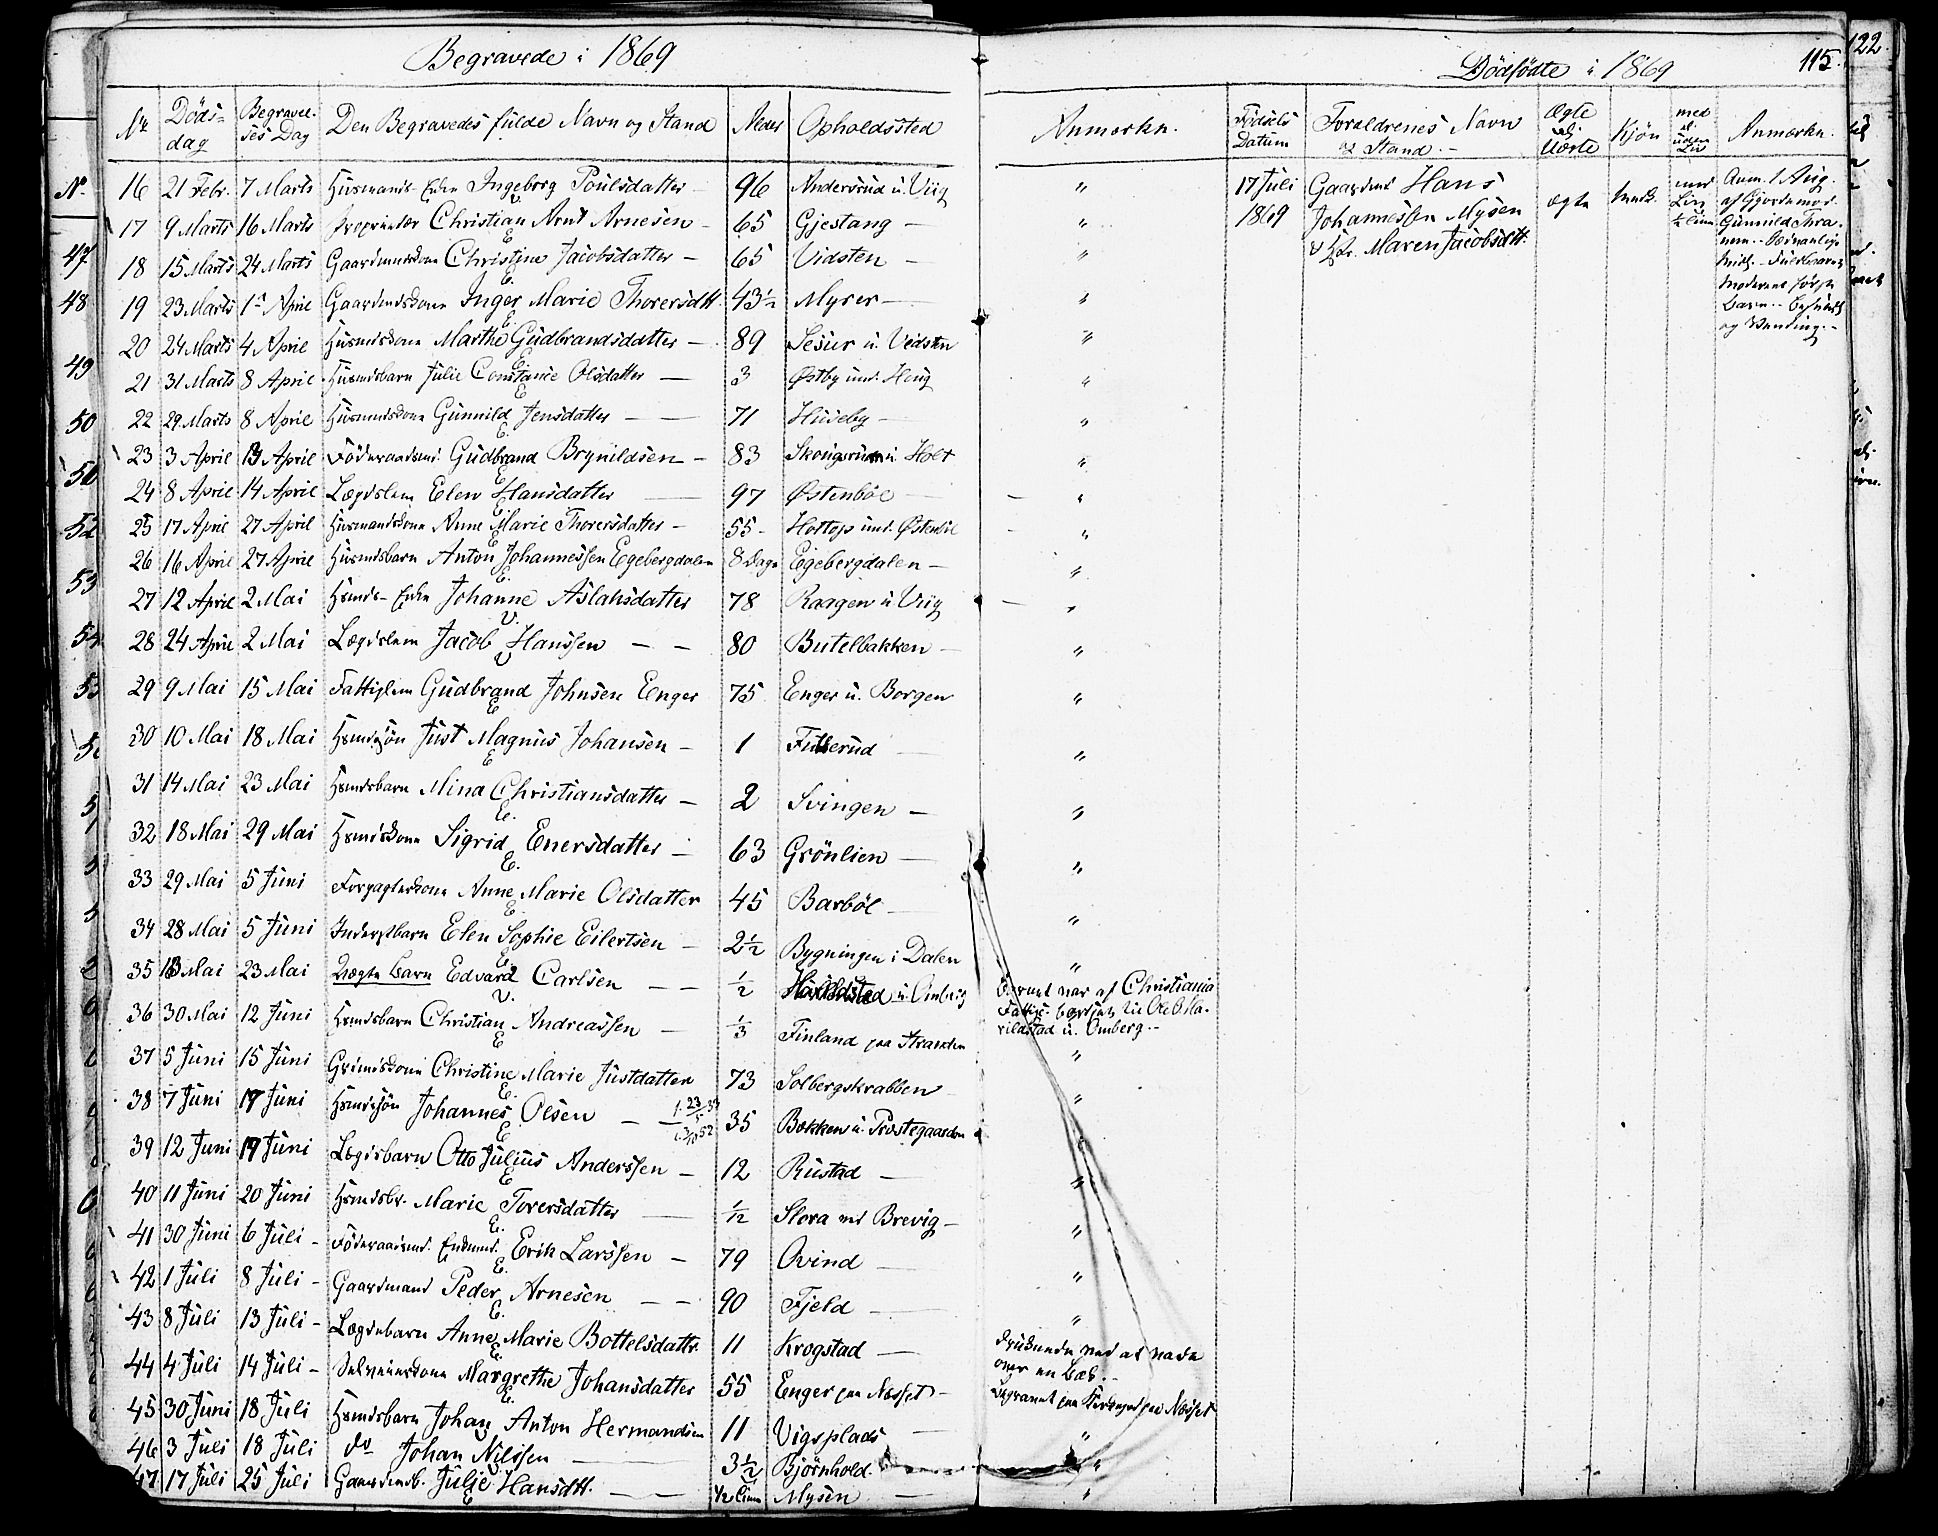 Begravede i 1869
Dödfödte i 1869
115.
122.
No Döds-dag Begravel-ses Dag Den Begravedes fulde Navn og Stand Alder Opholdssted Anmærkn.
16 21 Febr. 7 Marts Husmands Enke Ingeborg Poulsdatter - 96 Andersrud u. Viig "
17 9 Marts 16 Marts Proprietær Christian Arnt Arnesen - 65 Gjestang - "
18 15 Marts 24 Marts Gaardmandskone Christine Jacobsdatter - 65 Vidsten - "
19 23 Marts 1st April Gaardmdskone Inger Marie Thorersdtt. 43½ Myrer - "
20 24 Marts 4 April Husmdskone Marthe Gudbrandsdatter - 89 Sesur u. Vidsten "
21 31 Marts 8 April Husmdsbarn Julie Constance Olsdatter - 3 Østby und. Houg "
22 29 Marts 8 April Husmdskone Gunnild Jensdatter - 71 Hüseby - "
23 3 April 13 April Föderaadsmd. Gudbrand Brynildsen - 83 Skougsrud u. Holt "
24 8 April 14 April Lægdslem Elen Hansdatter 97 Østenböe - "
25 17 April 27 April Husmandskone Anne Marie Thorersdatter - 55 - Hottop und. Østenböl "
26 16 April 27 April Husmdsbarn Anton Johannessen Egebergdalen 8 Dage Egebergdalen - "
27 12 April 2 Mai Hsmds- Enke Johanne Aslaksdatter 78 Raagen u Viig "
28 24 April 2 Mai Lægdslem Jacob Hanssen - - 80 Butelbakken - "
29 9 Mai 15 Mai Fattiglem Gudbrand Johnsen Enger 75 Enger u. Borgen "
30 10 Mai 18 Mai Hsmdssön Just Magnus Johansen - 1 "
31 14 Mai 23 Mai Hsmdsbarn Mina Christiansdatter - 2 Svingen - "
32 18 Mai 29 Mai Hsmdskone Sigrid Enersdatter - 63 Grönlien - "
33 29 Mai 5 Juni Forpagterkone Anne Marie Olsdatter 45 Barböl - "
34 28 Mai 5 Juni Inderstbarn Elen Sophie Eilertsen - 2½ Bygningen i Dalen "
35 13 Mai 23 Mai Uægte Barn Edvard Carlsen - - ½ u. Omberg Barnet var af Christiania
Fattigv. bortsat til Ole O. Ha-
rildstad u. Omberg.-
36 30 Mai 12 Juni Hsmdsbarn Christian Andreassen - ⅓ Finland paa Stranden "
37 5 Juni 15 Juni Grdmdskone Christine Marie Justdatter 73 Solbergskrabben "
38 7 Juni 17 Juni Hsmdssön Johannes Olsen - 35 Bækken u. Præstegaarden "
39 12 Juni 19 Juni Lægdsbarn Otto Julius Anderssen - 12 Rustad - "
40 11 Juni 20 Juni Hsmdsbr. Marie Torersdatter ½ Slora ved Brevig - "
41 30 Juni 6 Juli - Föderaadsmd. Enkemd. Erik Larssen - 79 Ovind - "
42 1 Juli 8 Juli - Gaardmand Peder Arnesen - - 90 Fjeld - "
43 8 Juli 13 Juli - Lægdebarn Anne Marie Bottelsdattr. 11 Krogstad - druknede ved at vade
over en Bæk.-
44 4 Juli 14 Juli - Selveierskone Margrethe Johansdatter 55 Enger paa Næsset - Begravet paa Kirkegd paa Næsset
45 30 Juni 18 Juli Hsmdsbarn Johan Anton Hermandsen 11 Vigsplads "
46 3 Juli 18 Juli do Johan Nilssen - 3½ Björnhold. "
47 17 Juli 25 Juli Gaardmdb. Julie Hansdtt. - - ½ Time Mysen - "
Födsels Datum Foraldrenes Navn og Stand.- Ægte el. Uægte Kjön med el. uden Liv Anmærkn.
17 Juli 1869 Gaardmd Hans
Johannessen Mysen
& Hr. Maren Jacobsdtt. ægte med Liv ½ Time Anm. 1 Aug.
af Gjordemod.
Gunnild Thra-
nem.-
Moderens
Barn.-
og Vending.-
No.
47
48
49
50
50
52
53
54
53